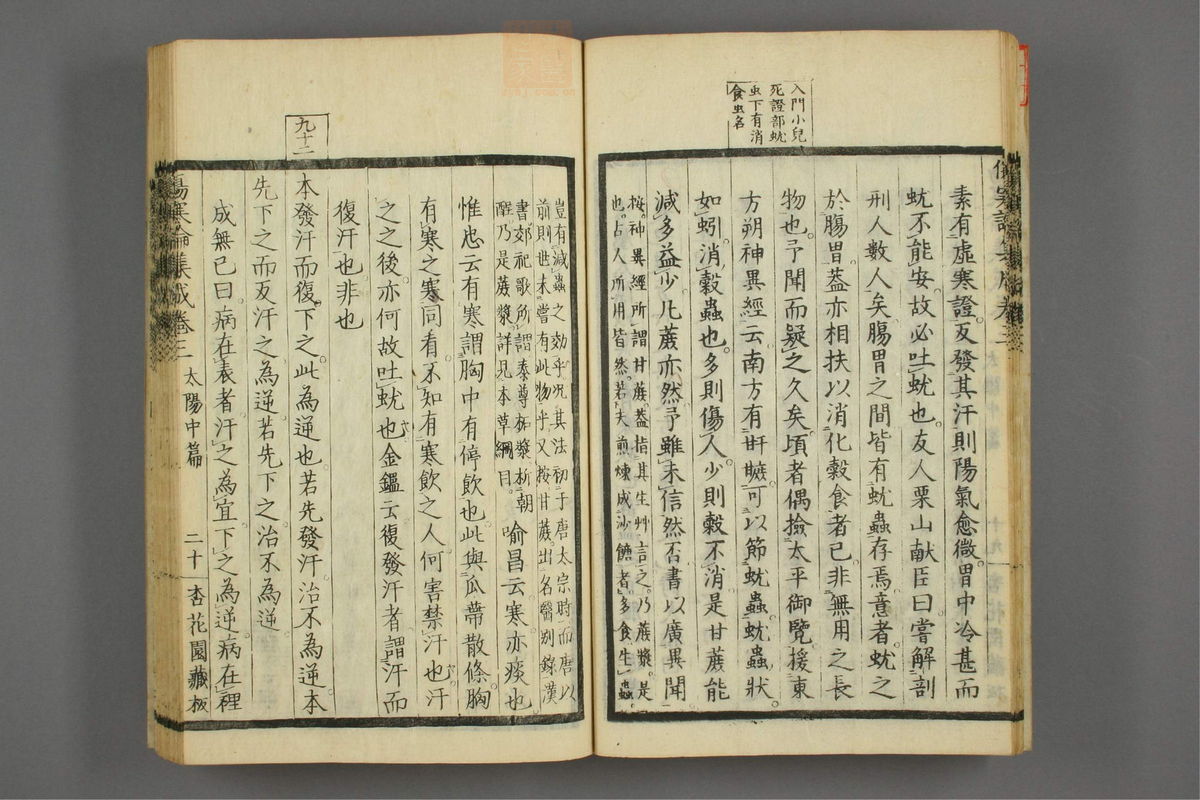 入門小兒
死證部蚘
虫下有消
食虫名
素有虛寒證。反發其汗則陽氣愈微。胃中冷甚而
蚘不能安。故必吐蚘也。友人栗山献臣曰嘗解剖
刑人數人矣。腸胃之間皆有蚘蟲存焉。意者蚘之
於腸胃。葢亦相扶以消化穀食者已。非無用之長
物也。予聞而疑之久矣。頃者偶撿太平御覽。援東
方朔神異經云。南方有䣛𧃲。可以節蚘蟲。蚘蟲狀
如蚓。消穀蟲也。多則傷人。少則穀不消。是甘蔗能
減多益少。凡蔗亦然。予雖未信然否。書以廣異聞
按。神異經所謂甘蔗。葢指其生艸言之。乃蔗漿。是
也。占人所用皆然。若夫煎煉成沙餹者。多食生蟲。
豈有減蟲之効乎。况其法初于唐太宗時。而唐以
前則世未嘗有此物乎。又按。甘蔗。出名醫别録漢
書郊祀歌所謂泰尊柘漿析朝
酲乃是蔗漿。詳見本草綱目。喻昌云寒亦痰也
惟忠云有寒謂胸中有停飲也。此與瓜蒂散條胸
有寒之寒同看。不知有寒飲之人何害禁汗也。汗
之之後。亦何故吐蚘也。金鑑云復發汗者。謂汗而
復汗也非也
九十二
本發汗而復下之。此為逆也。若先發汗。治不為逆。本
先下之而反汗之為逆。若先下之治不為逆
成無已曰。病在表者。汗之為宜。下之為逆。病在裡
傷寒論集成卷三 太陽中篇 二十 杏花園藏板